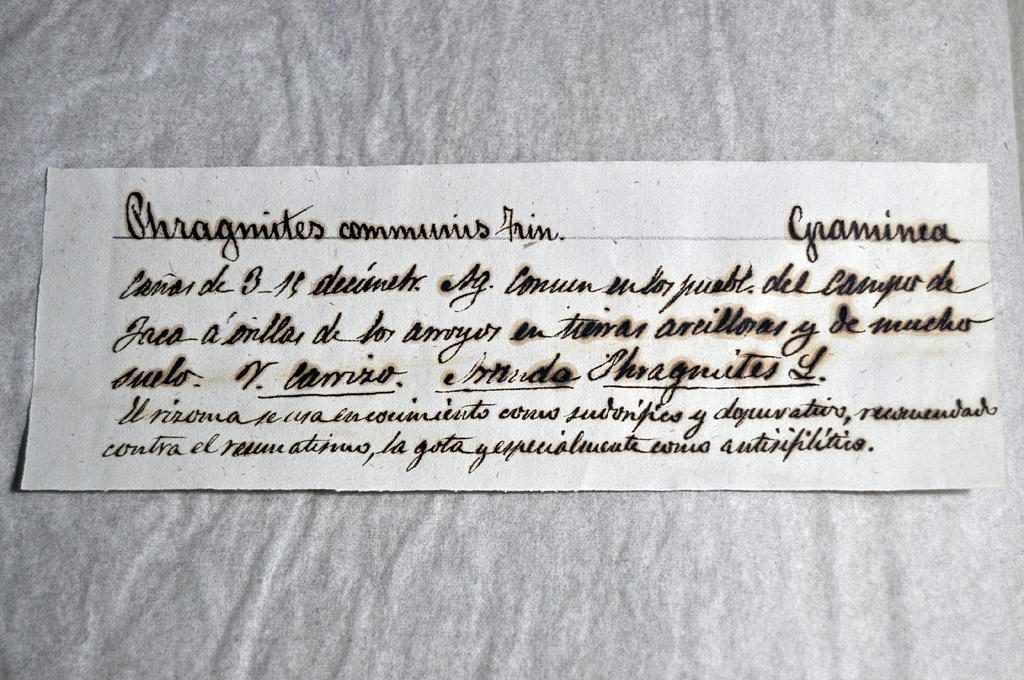 Phragmites communis Trin. Graminea
Cañas de 3-15 decímetr. Ag. Comun en los puebl. del campo de
Jaca á orillas de los arroyos en tierras arcillosas y de mucho
suelo. V. carrizo. Arundo Phragmites L.
El rizoma se usa en cocimiento como sudorífico y depurativo, recomendado
contra el reumatismo, la gota y especialmente como antisifilítico.